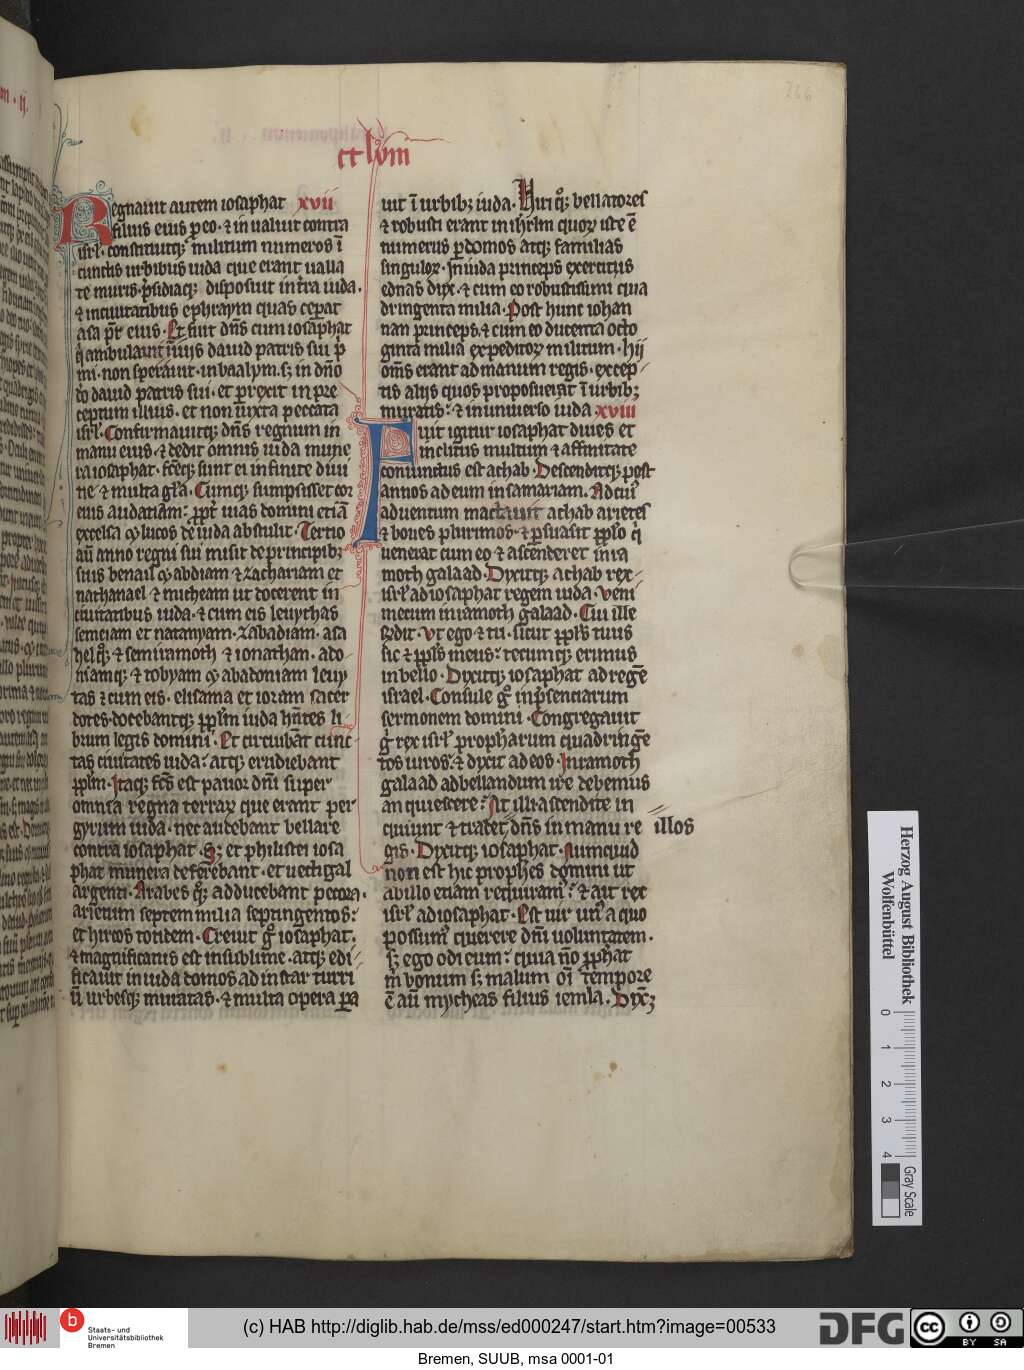 ct lvm
Regnauit autem iosaphat xvii
filius eius p eo · ⁊ inualuit contra
isrl̕ · constituitq; militum numeros ī
cunctis urbibus iuda que erant ualla
te muris · p̄sidiaq; disposuit in tr̄a iuda ·
⁊ in ciuitatibus ephraym quas ceperat
asa pr̄ eius · Et fuit dn̄s cum iosaphat
q̇ ambulauit ī uijs dauid patris sui p̄
mi · non sperauit in baalym · s; in dn̄o
dō dauid patris sui · et perrexit in pre
ceptum illius · et non iuxta peccata
isrl̕ · Confirmauitq; dn̄s regnum in
manu eius · ⁊ dedit omnis iuda mune
ra iosaphat · fc̄eq; sunt ei infinite diui
ne · ⁊ multa gl̄a · Cumq; sumpsisset cor
eius audatiam · ꝓpt̕ uias domini etiā
excelsa ⁊ lucos de iuda abstulit · Tertio
aū anno regni sui misit de principib;
suis benail ⁊ abdiam ⁊ zachariam et
nathanael ⁊ micheam ut docerent in
ciuitatibus iuda · ⁊ cum eis leuythas
semeiam et natanyam · zabadiam · asa
helq; ⁊ semiramoth ⁊ ionathan · ado-
niamq; ⁊ tobyam ⁊ abadoniam leuy
tas ⁊ cum eis · elisama et ioram sacer
dotes · docebantq; ppl̄m iuda hn̄tes li-
brum legis domini · Et circuibāt cunc-
tas ciuitates iuda · atq; erudiebant
ppl̄m · Itaq; fc̄s est pauor dn̄i super
omnia regna terraꝝ que erant per
gyrum iuda · nec audebant bellare
contra iosaphat · S; et philistei iosa
phat munera deferebant · et uectigal
argenti · Arabes q; adducebant pecora ·
arietum septem milia septingentos
et hircos totidem · Creuit g̊ iosaphat ·
⁊ magnificatus est in sublime · atq; edi-
ficauit in iuda domos ad instar turri
ū urbesq; muratas · ⁊ multa opera pa
uit ī urbib; iuda · Uiri q; bellatores
⁊ robusti erant in ihrl̄m quoꝝ iste ē
numerus p domos atq; familias
singuloꝝ · In iuda princeps exercitus
ednas dux · ⁊ cum eo robustissimi cua
dringenta milia · Post hunc iohan
nan princeps · ⁊ cum eo ducenta octo
ginta milia expeditoꝝ militum · hij
om̄s erant ad manum regis · excep-
tis alijs quos proposuerat ī urbib;
muratis · ⁊ in uniuerso iuda xviii
Fuit igitur iosaphat diues et
inclitus multum ⁊ affinitate
coniunctus est achab · Descenditq; post
annos ad eum in samariam · Ad cui᾽
aduentum mactauit achab arietes
⁊ boues plurimos · ⁊ p̱suasit ppl̕o q̇
uenerat cum eo ⁊ ascenderet in ra
moth galaad · Dyxitq; achab rex-
isrl̕ ad iosaphat regem iuda · Veni
mecum in ramoth galaad · Cui ille
rn̄dit · Vt ego ⁊ tu · sicut ppl̕s tuus
sic ⁊ ppl̕s meus · tecumq; erimus
in bello · Dyxitq; iosaphat ad regē
israel · Consule g̊ inp̄sentiarum
sermonem domini · Congregauit
g̊ rex isrl̕ propharum quadringē
tos uiros · ⁊ dyxit ad eos · In ramoth
galaad ad bellandum ire debemus
an quiescere · At illi ascendite in
quiunt ⁊ tradet dn̄s in manu re illos
gis · Dyxitq; iosaphat · Numquid
non est hic prophes domini ut
ab illo etiam requiram᾽ · ⁊ ait rex
isrl̕ ad iosaphat · Est uir un᾽ a quo
possum᾽ querere dn̄i uoluntatem ·
s; ego odi eum · quia nō pphat
m̄ bonum s; malum oī tempore
ē aū mycheas filius iemla · Dyx;
266
Herzog August Bibliothek
Wolfenbüttel
0 1 2 3 4
Gray Scale
b Staats- und
Universitätsbibliothek
Bremen
(c) HAB http://diglib.hab.de/mss/ed000247/start.htm?image=00533
DFG
cc BY SA
Bremen, SUUB, msa 0001-01